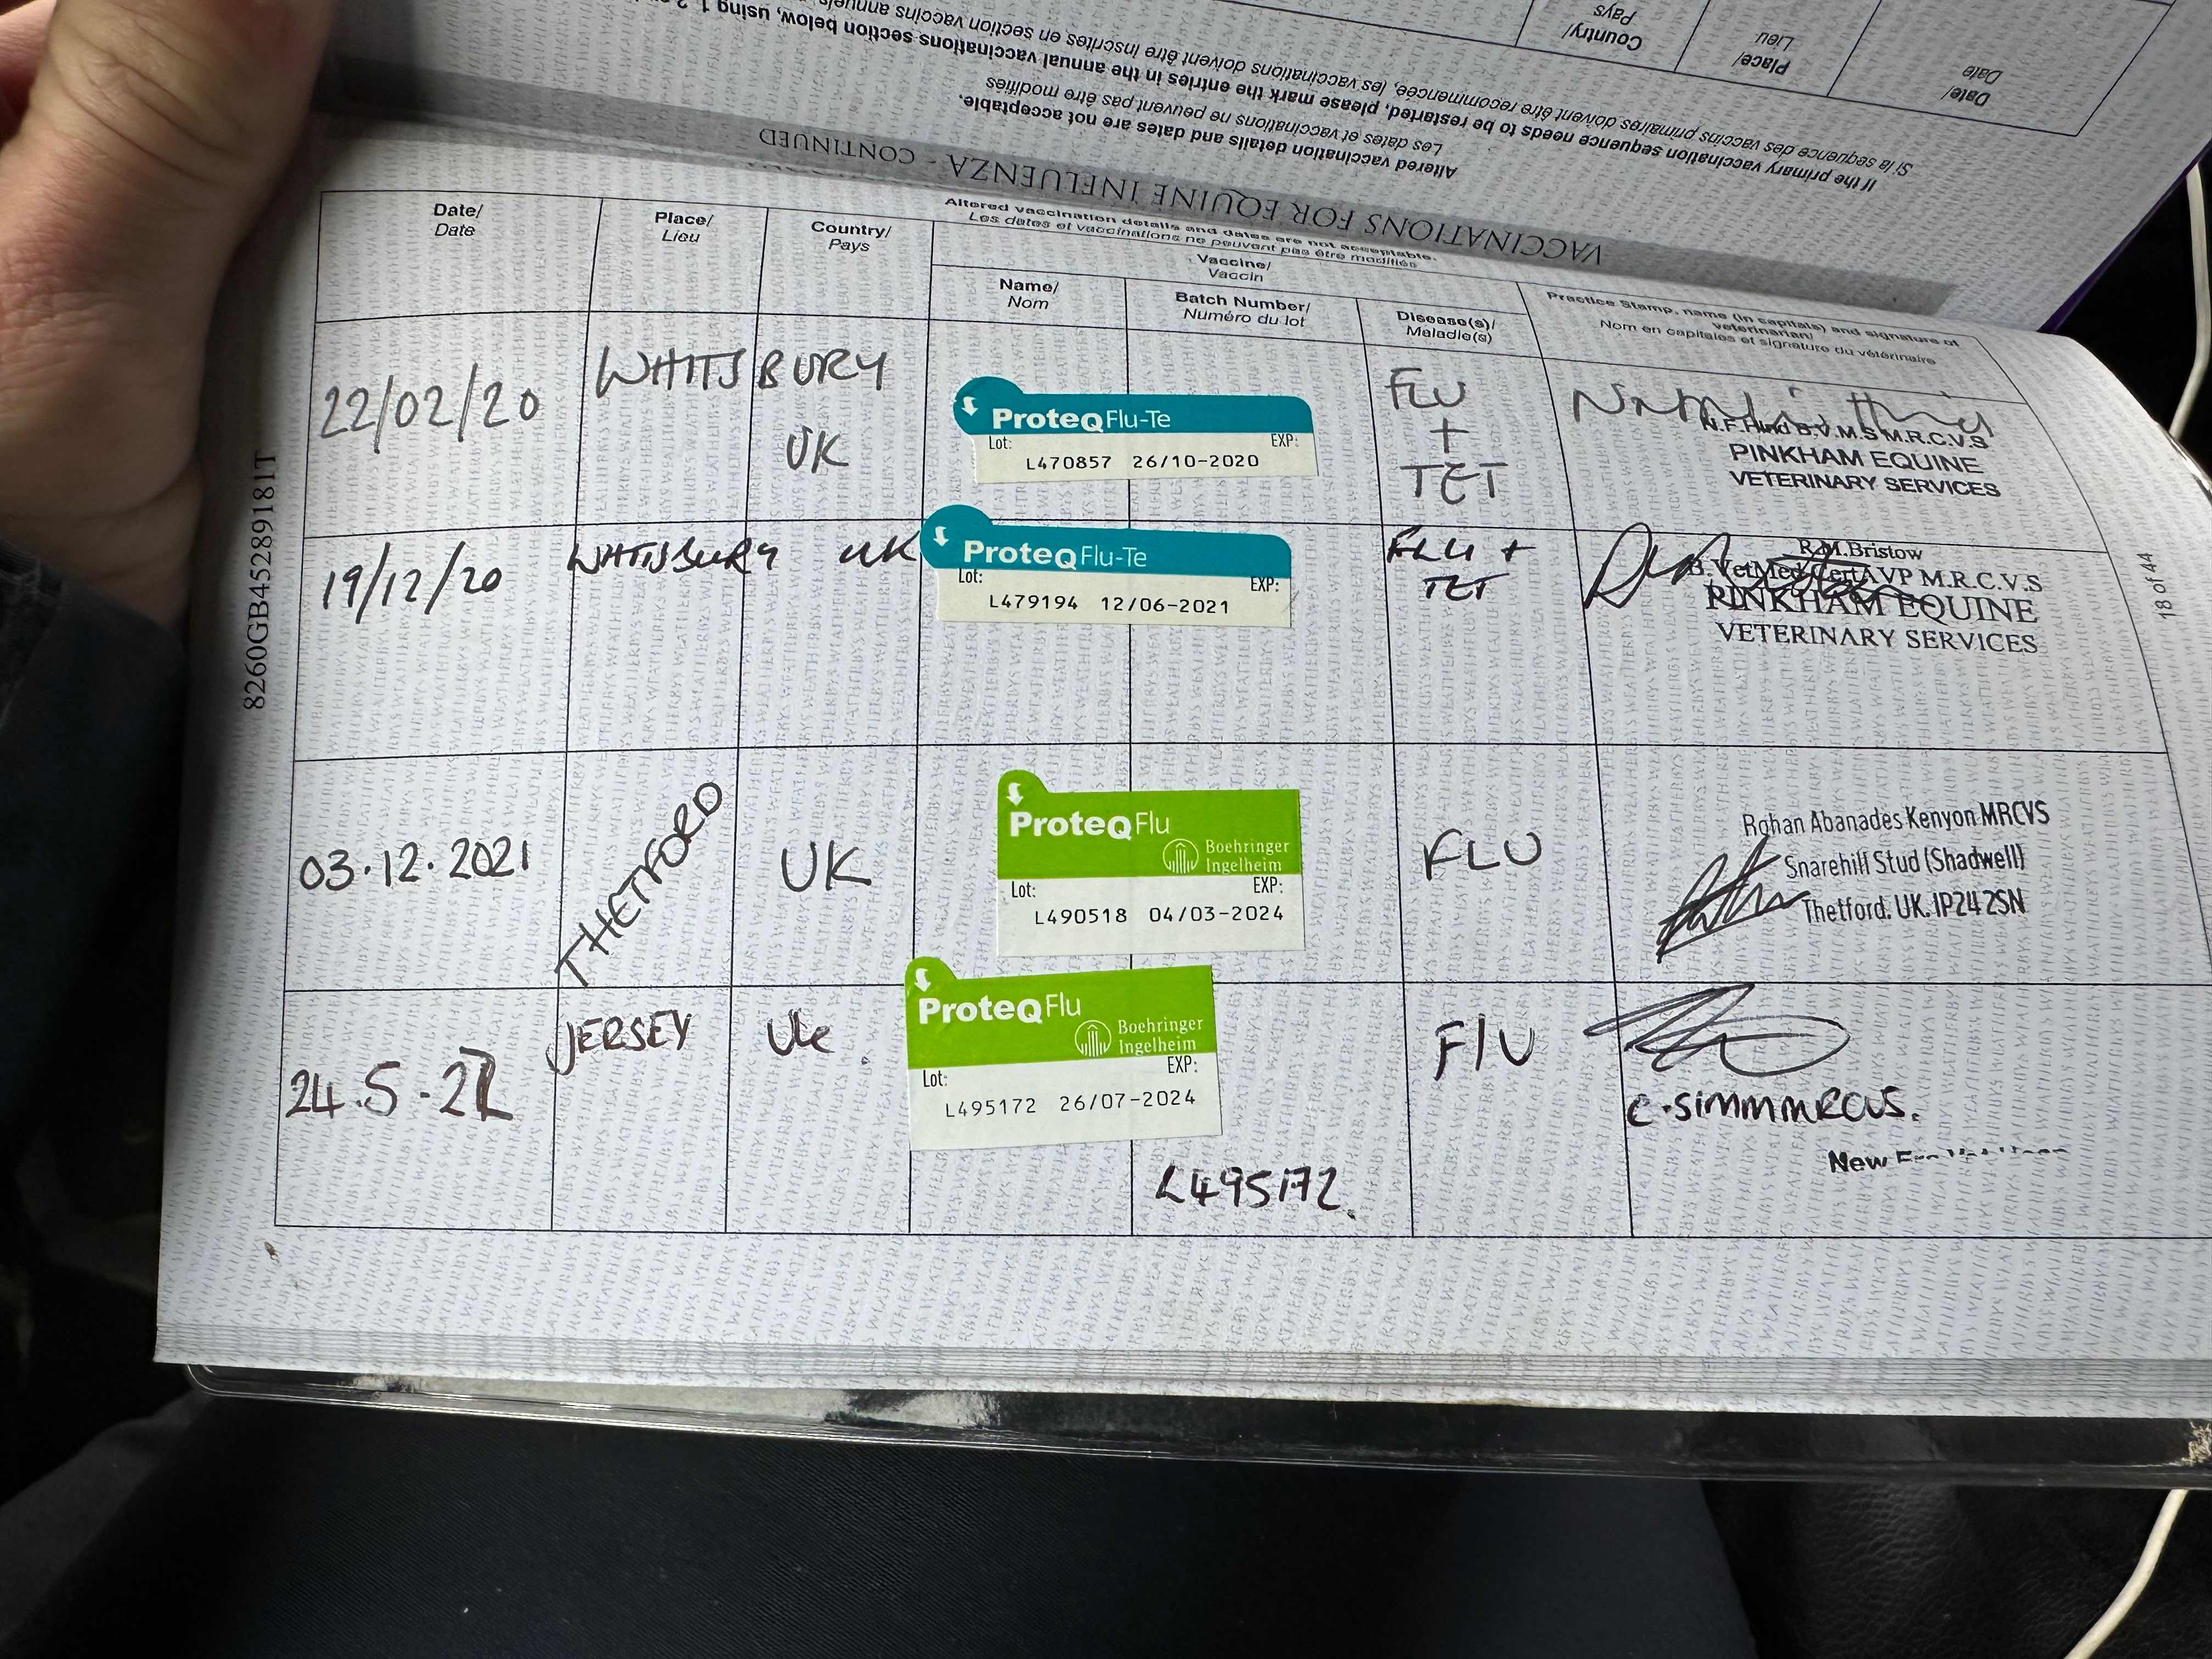 Date/
Date
Place/
Lieu
Country/
Pays
If the primary vaccination sequence needs to be restarted, please, mark the entries in the annual vaccinations sections below, using
Altered vaccination details and dates are not acceptable.
Les dates et vaccinations ne peuvent pas être modifiés
VACCINATIONS FOR EQUINE INFLUENZA - CONTINUED
Altered vaccination details and dates are not acceptable.
Les dates et vaccinations ne peuvent pas être modifiés
Date/
Date
Place/
Lieu
Country/
Pays
Vaccine/
Vaccin
Name/
Nom
Batch Number/
Numéro du lot
Disease(s)/
Maladie(s)
Practice Stamp, name (in capitals) and signature of
veterinarian/
Nom en capitales et signature du vétérinaire
22/02/20
WHITSBURY
UK
ProteQ Flu-Te
Lot: EXP:
L470857 26/10-2020
FLU
+
TET
N.F. B.V.M.S M.R.C.V.S
PINKHAM EQUINE
VETERINARY SERVICES
19/12/20
WHITSBURY UK
ProteQ Flu-Te
Lot: EXP:
L479194 12/06-2021
FLU +
TET
R.M.Bristow
B.VetMed CertAVP M.R.C.V.S
PINKHAM EQUINE
VETERINARY SERVICES
03.12.2021
THETFORD
UK
ProteQ Flu
Boehringer
Ingelheim
Lot: EXP:
L490518 04/03-2024
FLU
Rohan Abanades Kenyon MRCVS
Snarehill Stud (Shadwell)
Thetford. UK. IP24 2SN
24.5.22
JERSEY
UK.
ProteQ Flu
Boehringer
Ingelheim
Lot: EXP:
L495172 26/07-2024
L495172.
Flu
New
8260GB45289181T
18 of 44